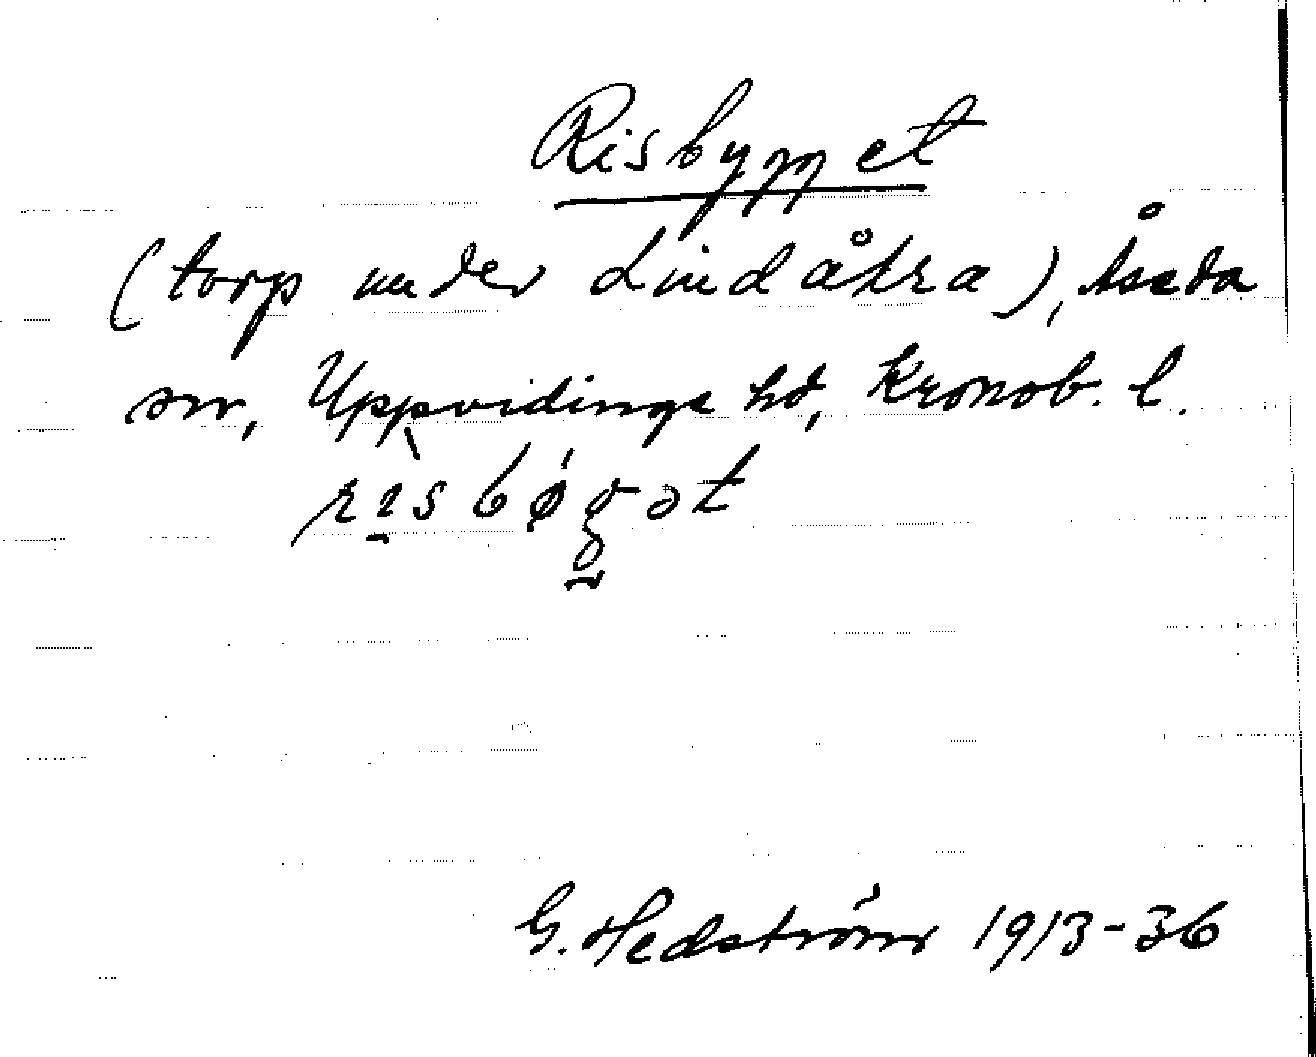 Risbygget
(torp under Lindåkra), Åseda
sn, Uppvidinge hd, Kronob. l.
G. Hedström 1913-36